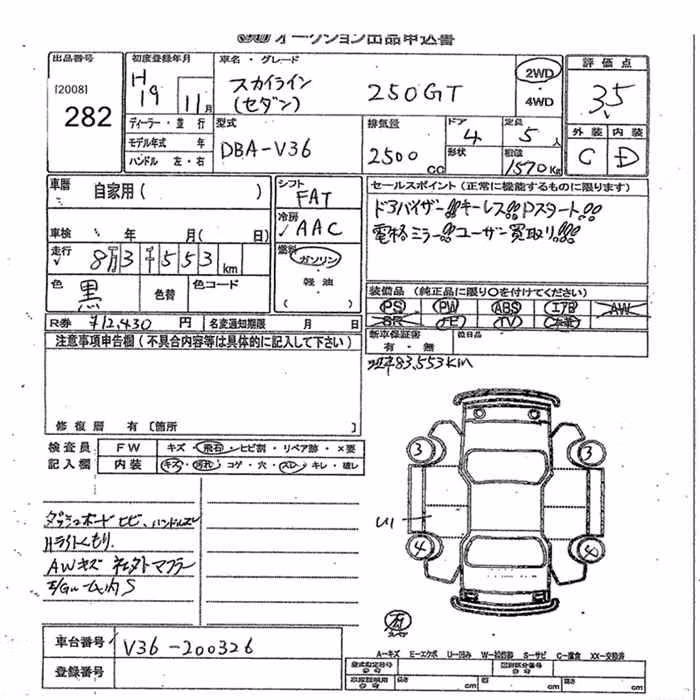 オークション出品申込書
出品番号 初度登録年月 車名・グレード 評価点
[2008] H19 11月 スカイライン (セダン) 250GT 2WD ・ 4WD 3.5
282
ディーラー・並行 型式 排気量 ドア 定員 外装 内装
モデル年式 年 DBA-V36 2500cc 4 5人 C D
ハンドル 左・右 形状 積載 1570Kg
車暦 自家用( ) シフト FAT セールスポイント(正常に機能するものに限ります)
冷房 AAC ドアバイザー!! キーレス!! Pスタート!!
車検 年 月( 日) 電格ミラー!! ユーザー買取り!!!
走行 8万3千553km 燃料 ガソリン ・ 軽油
色 黒 色替 色コード 装備品(純正品に限り○を付けてください)
PS PW ABS エアB AW
R券 ¥12,430円 名変通知期限 月 日 SR ナビ TV 本革
注意事項申告欄(不具合内容等は具体的に記入して下さい) 新車保証書 後日品
有・無
83,553km
修復暦 有〔箇所 〕
検査員 FW キズ・飛石・ヒビ割・リペア跡・×要
記入欄 内装 キズ・汚れ・コゲ・穴・スレ・キレ・破レ
3 3
ダッシュボードヒビ、ハンドルスレ
Hライトくもり、
4
AWキズ 社外マフラー
車台番号 V36-200326
登録番号
A-キズ E-エクボ U-凹み W-補修跡 S-サビ C-腐食 XX-交換済
型式指定番号 類別区分番号
cm cm cm